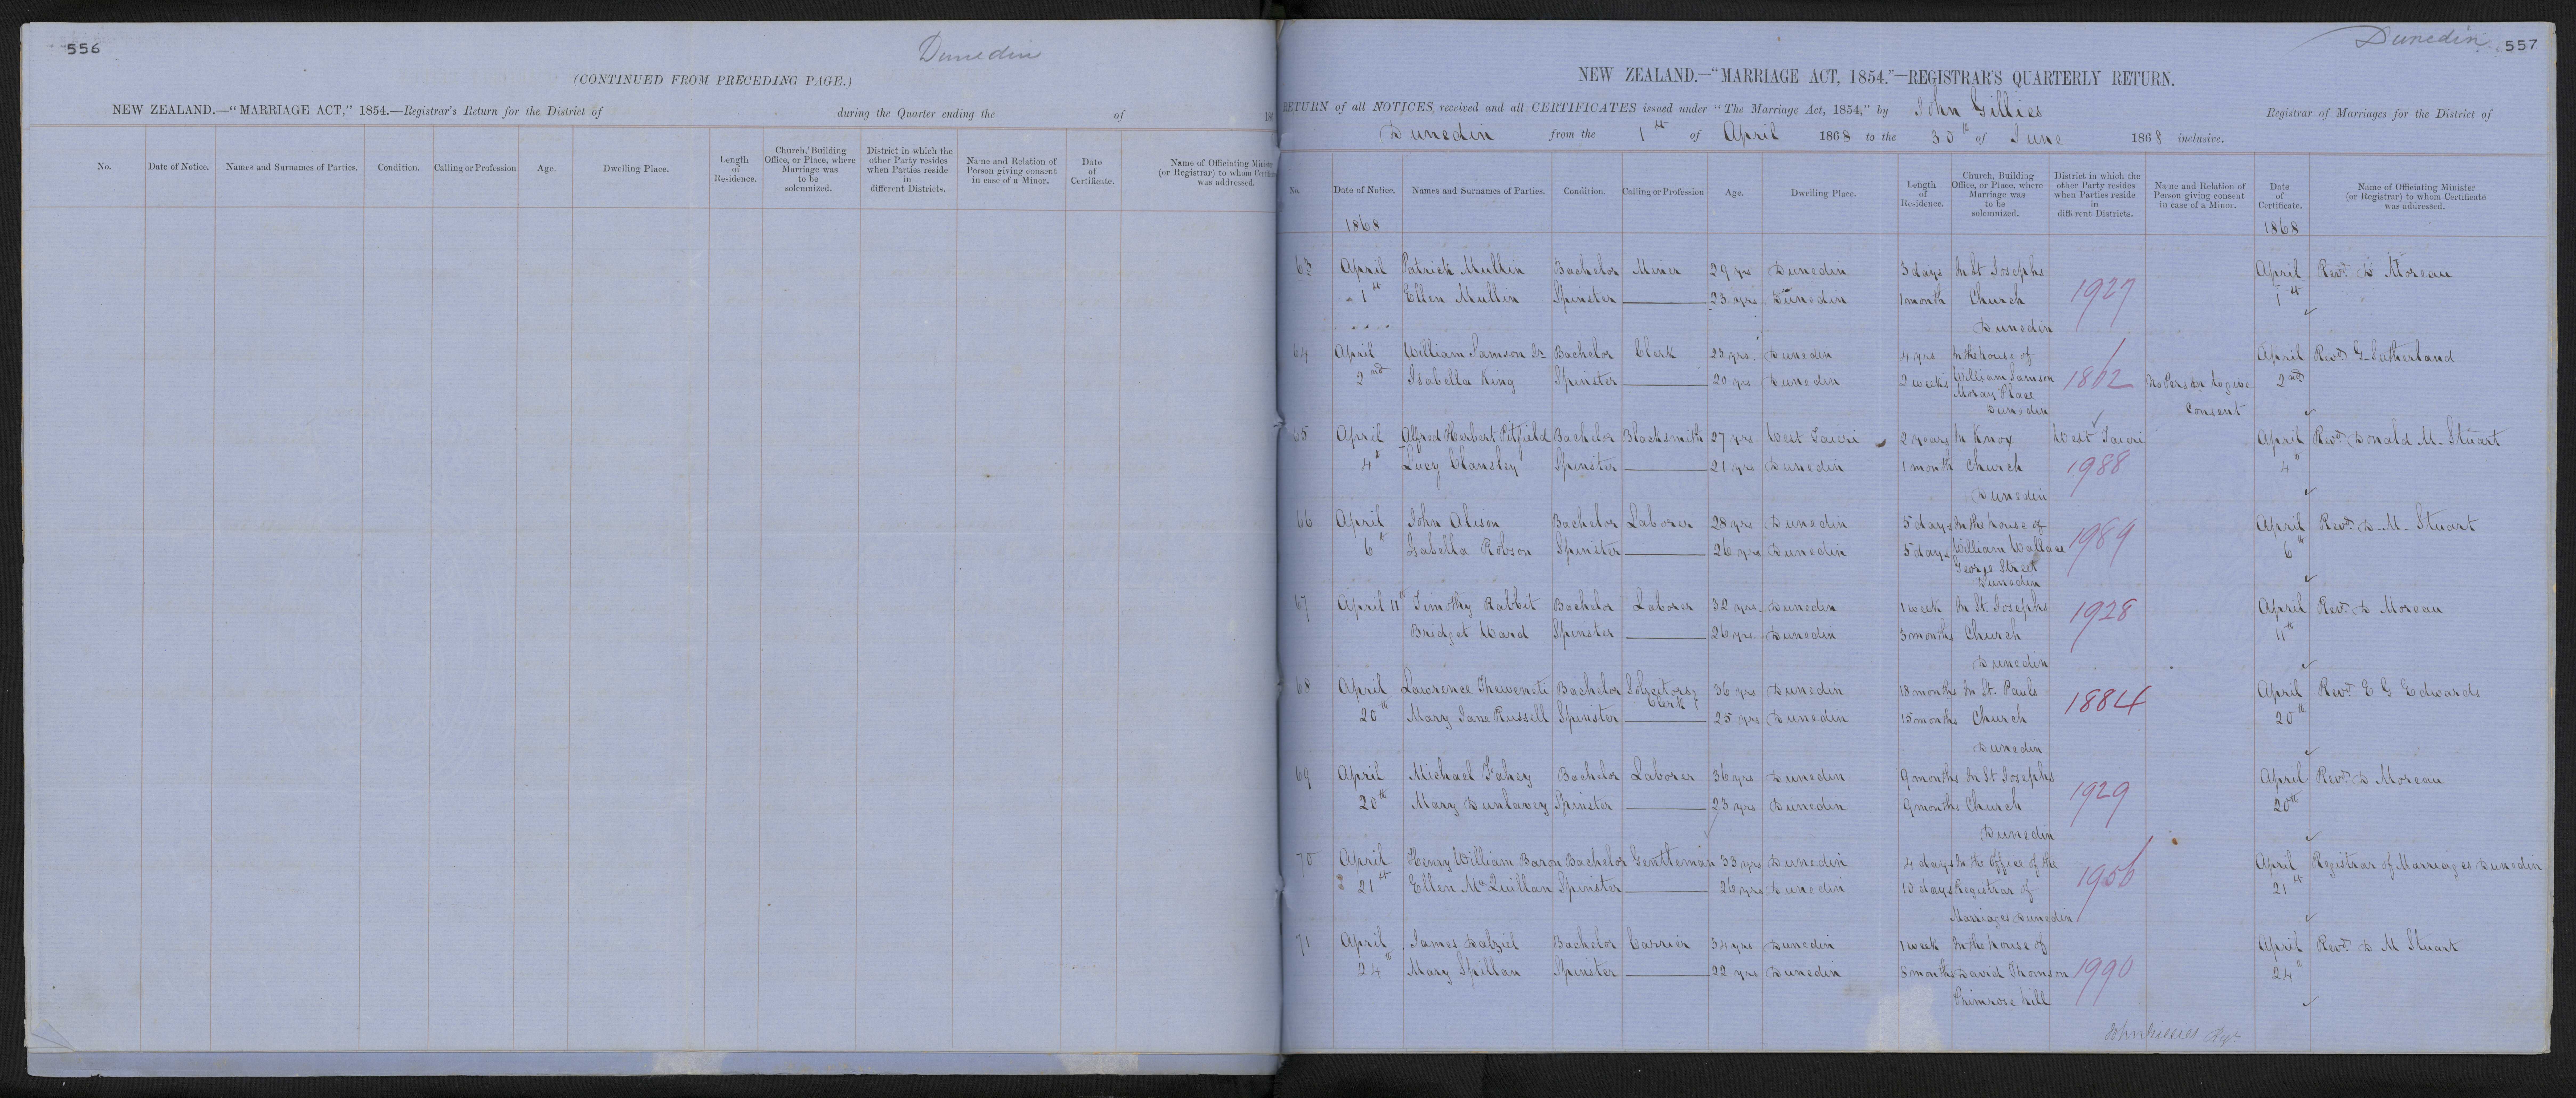 556
Dunedin
(CONTINUED FROM PRECEDING PAGE.)
NEW ZEALAND.—"MARRIAGE ACT," 1854.—Registrar's Return for the District of during the Quarter ending the of 186
No. Date of Notice. Names and Surnames of Parties. Condition. Calling or Profession Age. Dwelling Place. Length of Residence. Church, Building Office, or Place, where Marriage was to be solemnized. District in which the other Party resides when Parties reside in different Districts. Name and Relation of Person giving consent in case of a Minor. Date of Certificate. Name of Officiating Minister (or Registrar) to whom Certificate was addressed.
Dunedin 557
NEW ZEALAND.—"MARRIAGE ACT, 1854."—REGISTRAR'S QUARTERLY RETURN.
RETURN of all NOTICES, received and all CERTIFICATES issued under "The Marriage Act, 1854," by John Gillies Registrar of Marriages for the District of
Dunedin from the 1st of April 1868 to the 30th of June 1868 inclusive.
No. Date of Notice. Names and Surnames of Parties. Condition. Calling or Profession Age. Dwelling Place. Length of Residence. Church, Building Office, or Place, where Marriage was to be solemnized. District in which the other Party resides when Parties reside in different Districts. Name and Relation of Person giving consent in case of a Minor. Date of Certificate. Name of Officiating Minister (or Registrar) to whom Certificate was addressed.
1868 1868
63 April Patrick Mullin Bachelor Miner 29 yrs Dunedin 3 days In St Josephs April Revd. D Moreau
1st Ellen Mullin Spinster 23 yrs Dunedin 1 month Church 1927 1st
Dunedin
64 April William Samson Jr Bachelor Clerk 23 yrs. Dunedin 4 yrs In the house of April Revd G. Sutherland
2nd Isabella King Spinster 20 yrs Dunedin 2 weeks William Samson 1802 No Person to give 2nd
Moray Place
Dunedin Consent
65 April Alfred Herbert Petfield Bachelor Blacksmith 27 yrs West Taieri 2 years In Knox West Taieri April Revd Donald M. Stuart
4th Lucy Clansley Spinster 21 yrs Dunedin 1 month Church 1988 4th
Dunedin
66 April John Alison Bachelor Laborer 28 yrs Dunedin 5 days In the house of April Revd. D. M. Stuart
6th Isabella Robson Spinster 26 yrs Dunedin 5 days William Wallace 1989 6th
George Street
Dunedin
67 April 11th Timothy Rabbit Bachelor Laborer 32 yrs. Dunedin 1 week In St. Josephs 1928 April Revd. D Moreau
Bridget Ward Spinster 26 yrs. Dunedin 3 months Church 11th
Dunedin
68 April Lawrence Theweneti Bachelor Solicitors Clerk 36 yrs Dunedin 18 months In St. Pauls April Revd E G Edwards
20th Mary Jane Russell Spinster 25 yrs Dunedin 15 months Church 1884 20th
Dunedin
69 April Michael Fahey Bachelor Laborer 36 yrs Dunedin 9 months In St Josephs April Revd. D Moreau
20th Mary Dunlavey Spinster 23 yrs Dunedin 9 months Church 1929 20th
Dunedin
70 April Henry William Baron Bachelor Gentleman 33 yrs Dunedin 4 days In the Office of the April Registrar of Marriages Dunedin
21st Ellen McQuillan Spinster 26 yrs Dunedin 10 days Registrar of 1956 21st
Marriages Dunedin
71 April James Dalziel Bachelor Carrier 34 yrs Dunedin 1 week In the house of April Revd. D M Stuart
24th Mary Spillan Spinster 22 yrs Dunedin 8 months David Thomson 1990 24th
Primrose hill
John Gillies Regr